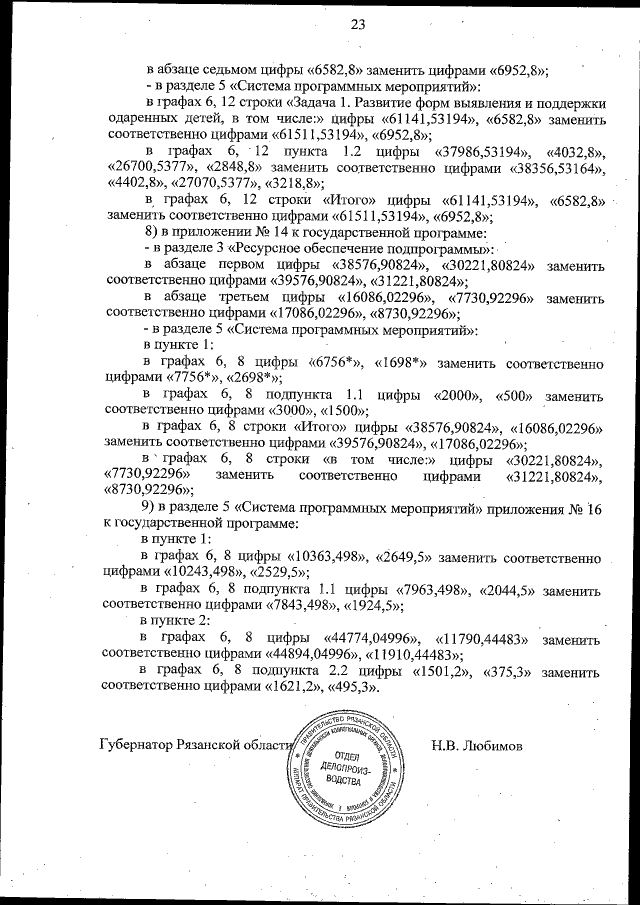 23
в абзаце седьмом цифры «6582,8» заменить цифрами «6952,8»;
- в разделе 5 «Система программных мероприятий»:
в графах 6, 12 строки «Задача 1. Развитие форм выявления и поддержки
одаренных детей, в том числе:» цифры «61141,53194», «6582,8» заменить
соответственно цифрами «61511,53194», «6952,8»;
в графах 6, 12 пункта 1.2 цифры «37986,53194», «4032,8»,
«26700,5377», «2848,8» заменить соответственно цифрами «38356,53164»,
«4402,8», «27070,5377», «3218,8»;
в графах 6, 12 строки «Итого» цифры «61141,53194», «6582,8»
заменить соответственно цифрами «61511,53194», «6952,8»;
8) в приложении № 14 к государственной программе:
- в разделе 3 «Ресурсное обеспечение подпрограммы»:
в абзаце первом цифры «38576,90824», «30221,80824» заменить
соответственно цифрами «39576,90824», «31221,80824»;
в абзаце третьем цифры «16086,02296», «7730,92296» заменить
соответственно цифрами «17086,02296», «8730,92296»;
- в разделе 5 «Система программных мероприятий»:
в пункте 1:
в графах 6, 8 цифры «6756*», «1698*» заменить соответственно
цифрами «7756*», «2698*»;
в графах 6, 8 подпункта 1.1 цифры «2000», «500» заменить
соответственно цифрами «3000», «1500»;
в графах 6, 8 строки «Итого» цифры «38576,90824», «16086,02296»
заменить соответственно цифрами «39576,90824», «17086,02296»;
в графах 6, 8 строки «в том числе:» цифры «30221,80824»,
«7730,92296» заменить соответственно цифрами «31221,80824»,
«8730,92296»;
9) в разделе 5 «Система программных мероприятий» приложения № 16
к государственной программе:
в пункте 1:
в графах 6, 8 цифры «10363,498», «2649,5» заменить соответственно
цифрами «10243,498», «2529,5»;
в графах 6, 8 подпункта 1.1 цифры «7963,498», «2044,5» заменить
соответственно цифрами «7843,498», «1924,5»;
в пункте 2:
в графах 6, 8 цифры «44774,04996», «11790,44483» заменить
соответственно цифрами «44894,04996», «11910,44483»;
в графах 6, 8 подпункта 2.2 цифры «1501,2», «375,3» заменить
соответственно цифрами «1621,2», «495,3».
Губернатор Рязанской области
Н.В. Любимов
ПРАВИТЕЛЬСТВО РЯЗАНСКОЙ ОБЛАСТИ
АППАРАТ ПРАВИТЕЛЬСТВА РЯЗАНСКОЙ ОБЛАСТИ
ОТДЕЛ
ДЕЛОПРОИЗ-
ВОДСТВА